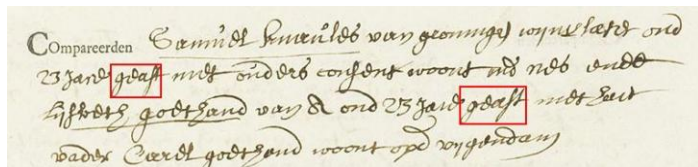 Compareerden Samuel knuules van groninge wijnverlater oud
23 Jare geast met ouders consent woont inds nes ende
lijsbeth goethand van A oud 23 Jare geast met haer
vader Carel goethand woont opd vijgendam